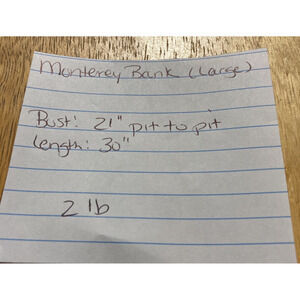 Monterey Bank (Large)
Bust: 21" pit to pit
length: 30"
2 lb